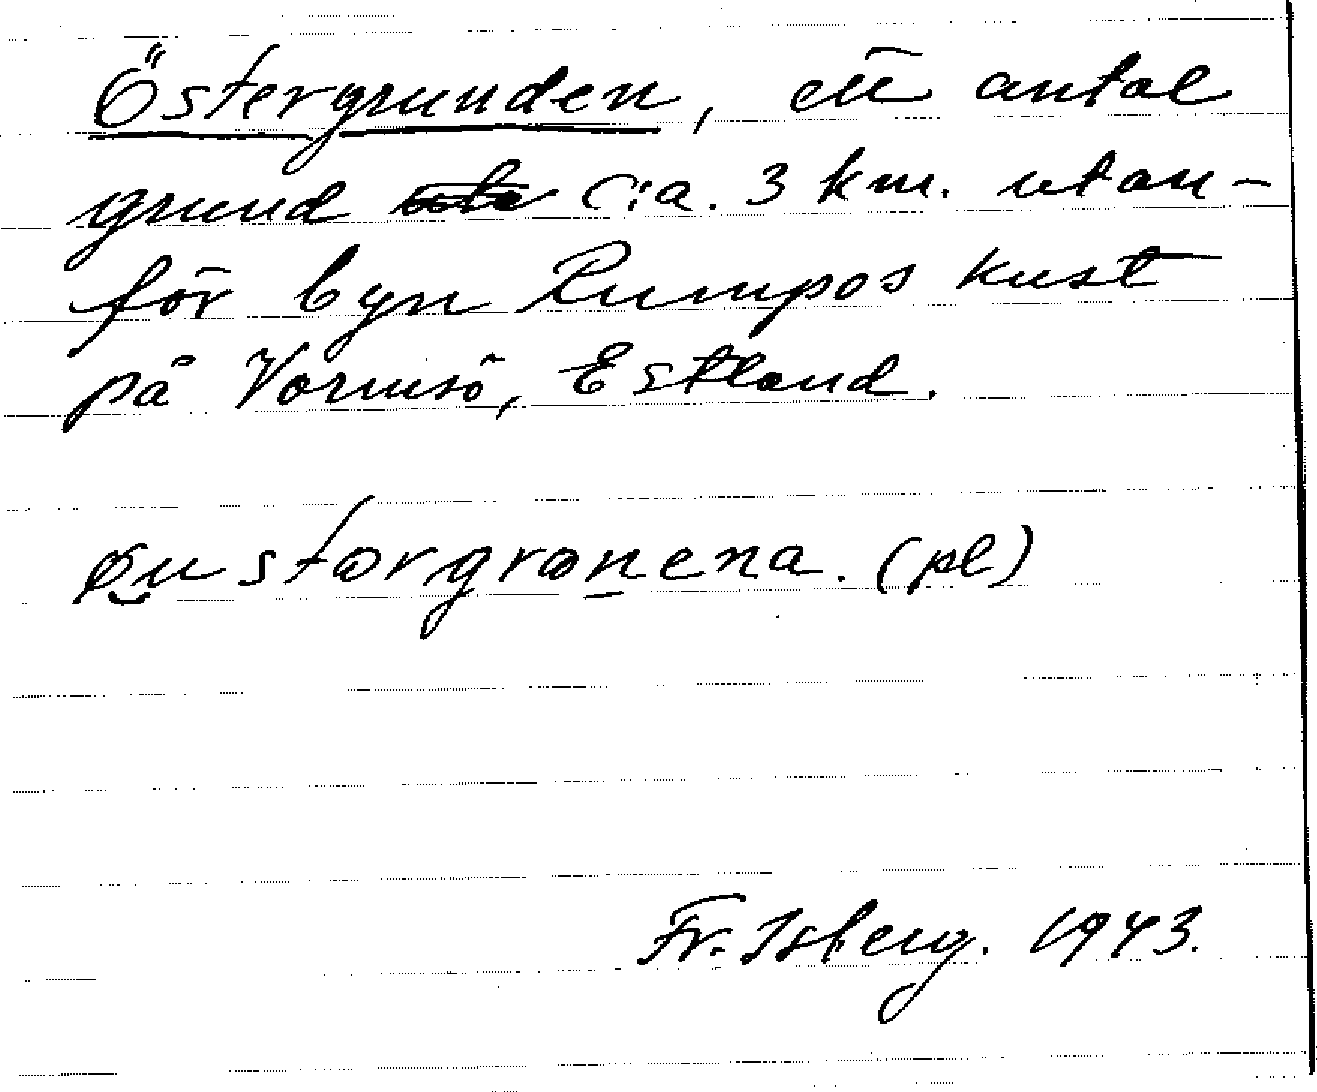 Östergrunden, ett antal
grund c:a. 3 km. utan-
för byn Rumpos kust
på Vormsö, Estland.
øu̯stərgrən̲ena. (pl)
Fr. Isberg. 1943.